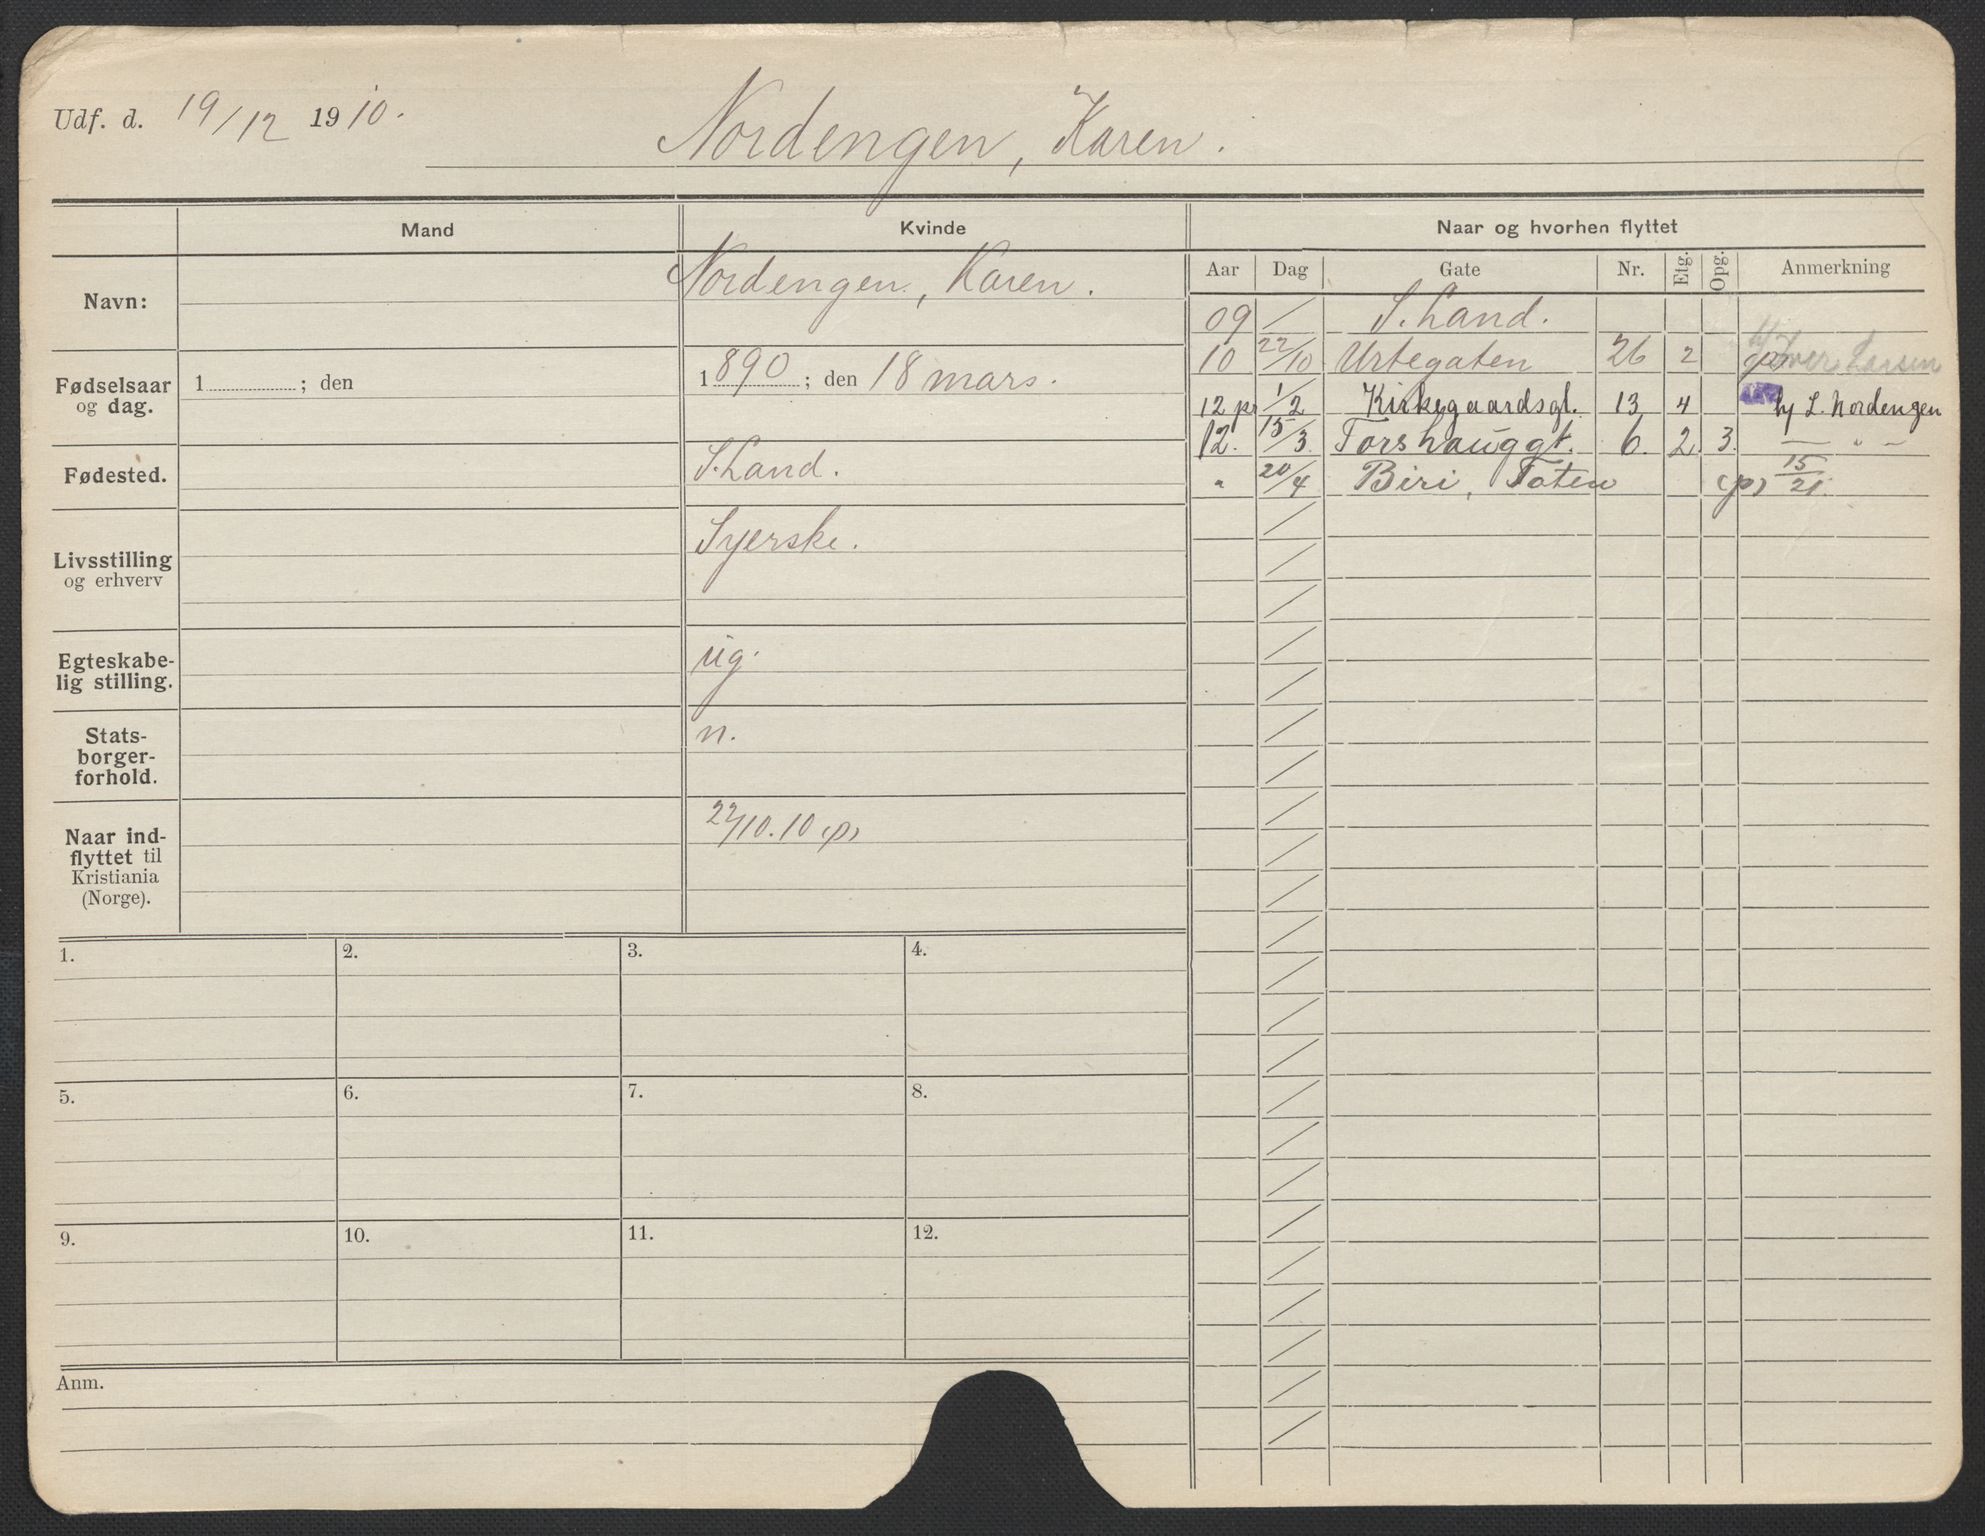 Udf. d. 19/12 1910.
Nordengen, Karen.
Mand Kvinde Naar og hvorhen flyttet
Aar Dag Gate Nr. Etg. Opg. Anmerkning
Navn: Nordengen, Karen.
Fødselsaar og dag. 1 ; den 1890 ; den 18 mars.
Fødested. S. Land.
Livsstilling og erhverv Syerske.
Egteskabelig stilling. ug.
Statsborgerforhold. n.
Naar indflyttet til Kristiania (Norge). 22/10.10 (p)
09 / S. Land.
10 22/10 Urtegaten 26 2 Iver Larsen
12 p 1/2 Kirkegaardsgt. 13 4 hj L. Nordengen
12. 15/3 Torshauggt. 6. 2 3. — " —
" 20/4 Biri, Toten (p) 15/21.
1. 2. 3. 4.
5. 6. 7. 8.
9. 10. 11. 12.
Anm.